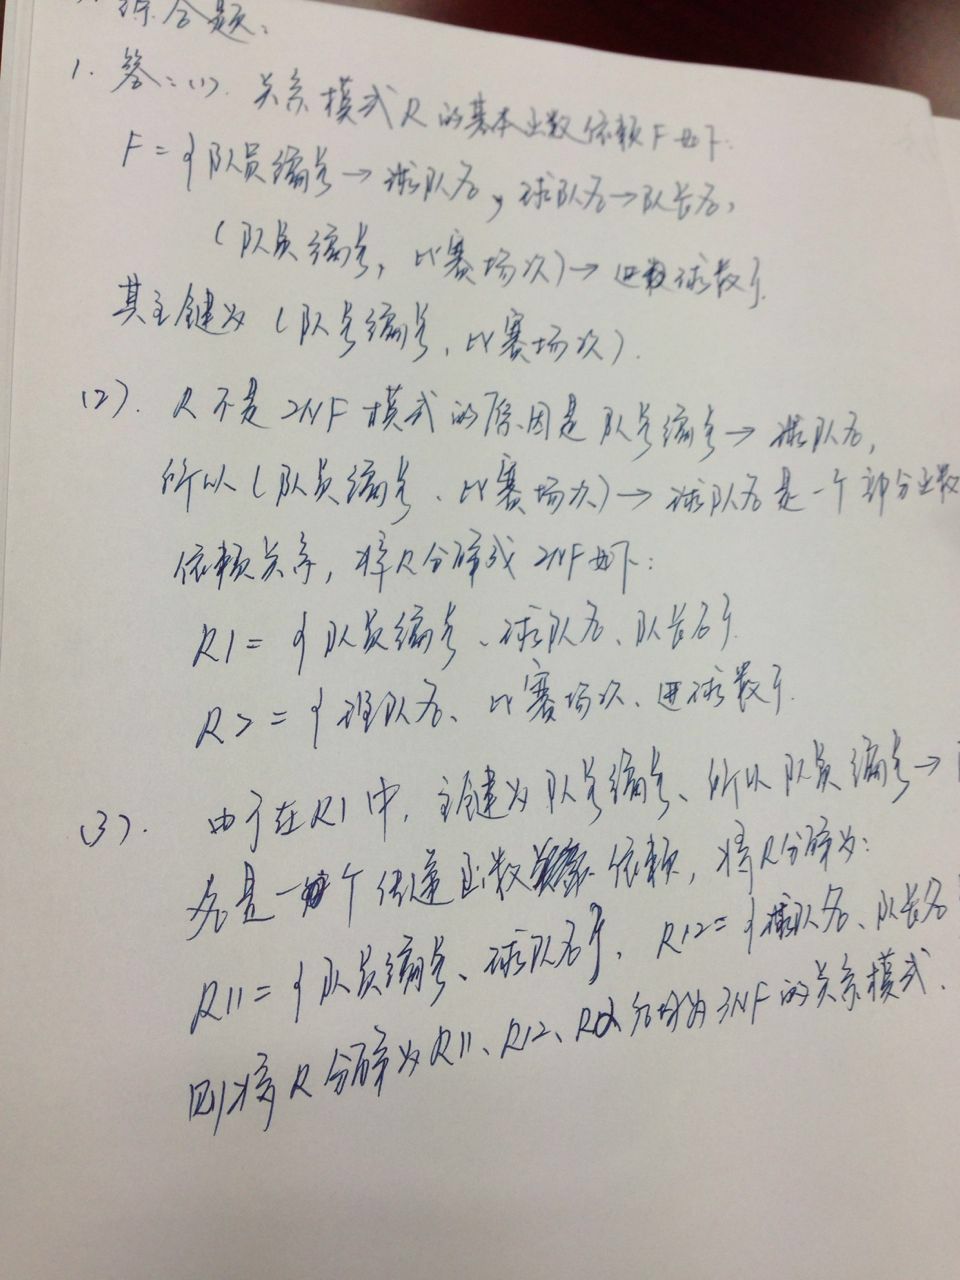 综合题:
1. 答:(1). 关系模式R的基本函数依赖F如下:
F={队员编号→球队名,球队名→队长名,
(队员编号,比赛场次)→进球数}.
其主键为(队员编号,比赛场次).
(2). R不是2NF模式的原因是队员编号→球队名,
所以(队员编号、比赛场次)→球队名是一个部分函数
依赖关系,将R分解成2NF如下:
R1={队员编号、球队名、队长名}.
R2={球队名、比赛场次、进球数}.
(3). 由于在R1中,主键为队员编号、所以队员编号→
名是一个传递函数依赖,将R分解为:
R11={队员编号、球队名},R12={球队名、队长名
则将R分解为R11、R12、R2后均为3NF的关系模式.